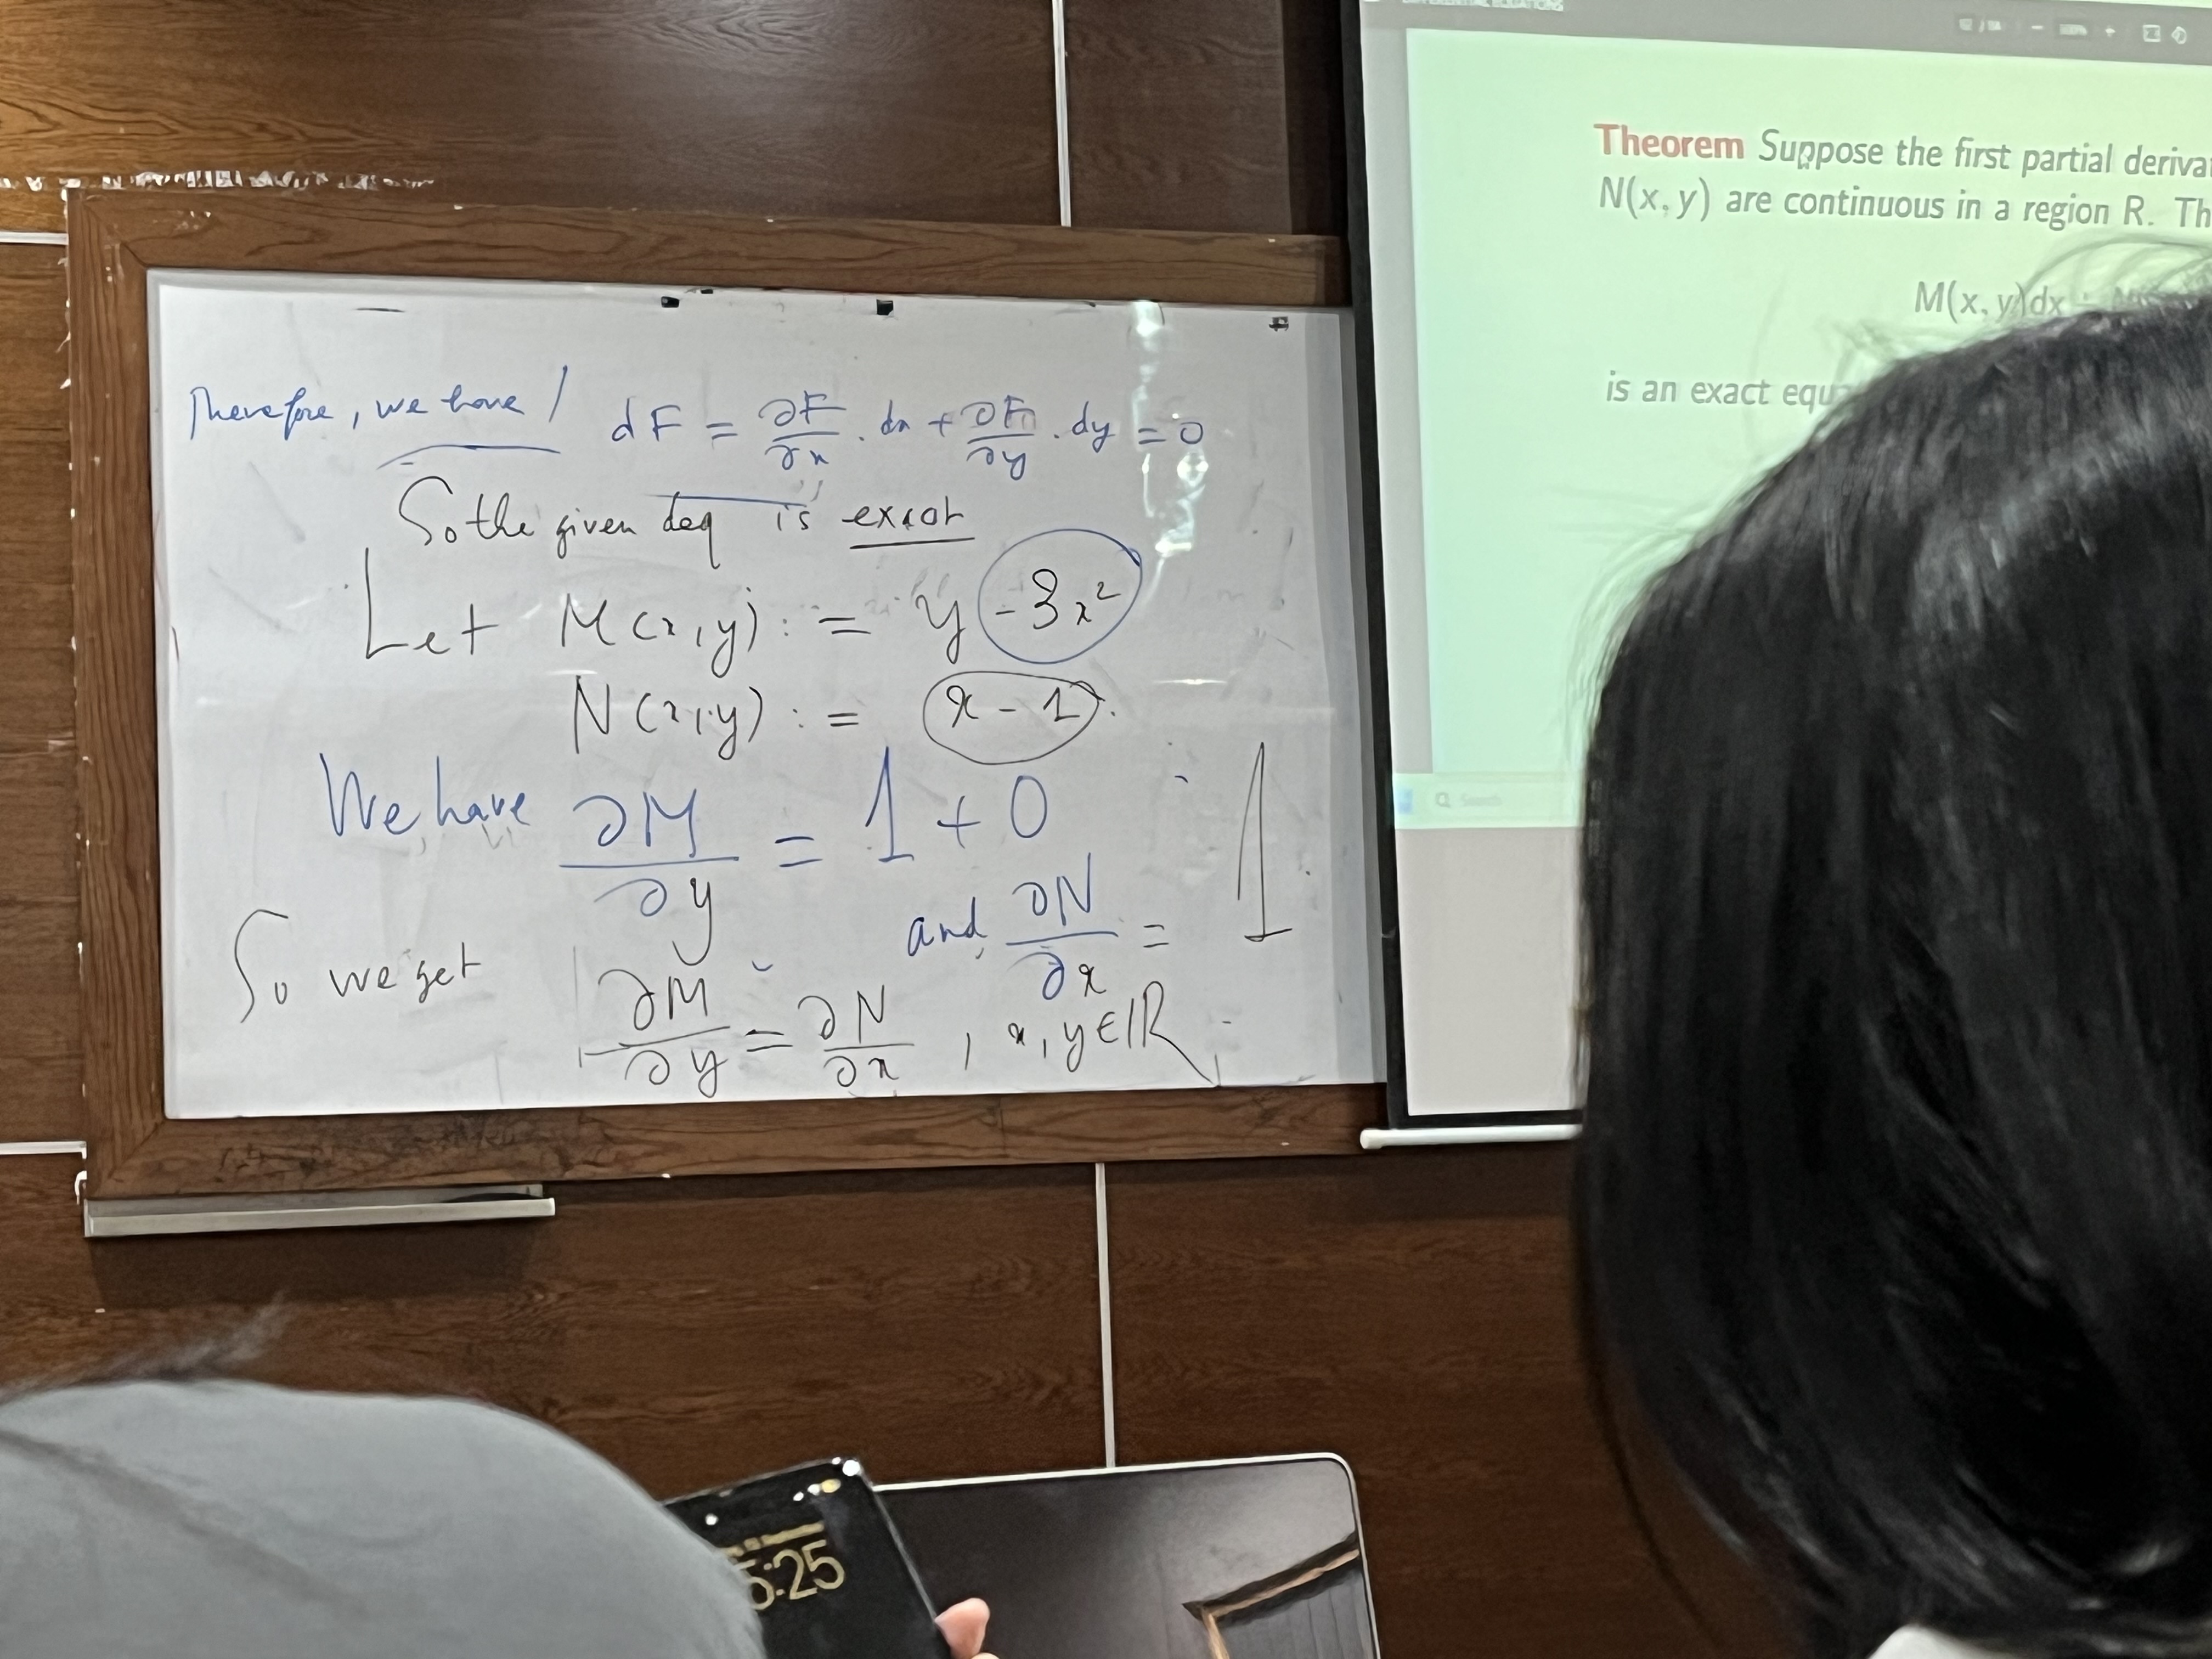 Therefore, we have / dF = ∂F/∂x . dx + ∂F/∂y . dy = 0
So the given deq is exact
Let M(x,y) := y - 3x²
N(x,y) := x - 1.
We have ∂M/∂y = 1 + 0
and ∂N/∂x = 1
So we get ∂M/∂y = ∂N/∂x , x, y ∈ ℝ
DIFFERENTIAL EQUATIONS
Theorem Suppose the first partial deriva
N(x, y) are continuous in a region R. Th
M(x, y)dx
is an exact equ
Search
5:25